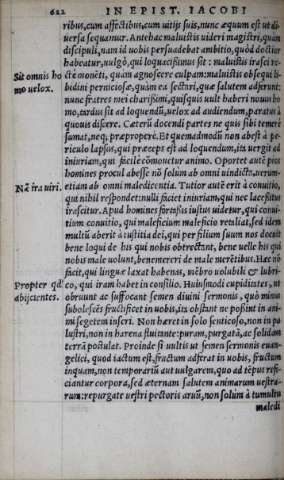 622 IN EPIST. IACOBI
ribus, cum affectibus, cum uitijs suis, nunc æquum est ut di
uersa sequamur. Antehac maluistis uideri magistri, quàm
discipuli, nam id uobis persuadebat ambitio, quòd doctior
habeatur, uulgò, qui loquacissimus sit: maluistis irasci re-
Sit omnis ho cte monẽti, quàm agnoscere culpam: maluistis obsequi li-
mo uelox. bidini perniciosæ, quàm ea sectari, quæ salutem adferunt:
nunc fratres mei charissimi, quisquis uult haberi nouus ho
mo, tardus sit ad loquendũ, uelox ad audiendum, paratus à
quouis discere. Caterũ docendi partes ne quis sibi temerè
sumat, neq; præproperè. Et quemadmodũ non abest à pe-
riculo lapsus, qui præceps est ad loquendum, ita uergit ad
iniuriam, qui facile cõmouetur animo. Oportet aũt à pijs
hominibus procul abesse nõ solum ab omni uindicta, uerum-
Nã ira uiri. etiam ab omni maledicentia. Tutior aũt erit à conuitio,
qui nihil respondet: nulli faciet iniuriam, qui nec lacessitus
irascitur. Apud homines fortassis iustus uidetur, qui conui-
tium conuitio, qui maleficium maleficio retaliat, sed idem
multũ aberit à iustitia dei, qui per filium suum nos docuit
bene loqui de his qui nobis obtrectant, bene uelle his qui
nobis male uolunt, benemereri de male merẽtibus. Hæc nõ
facit, qui linguæ laxat habenas, mẽbro uolubili & lubri-
Propter qđ co, qui iram habet in consilio. Huiusmodi cupiditates, ut
abijcientes. obruunt ac suffocant semen diuini sermonis, quò minus
subolescẽs fructificet in uobis, ita obstant ne possint in ani-
mi segetem inseri. Non hæret in solo senticoso, non in pa
lustri, non in harena fluitante: puram, purgatã, ac solidam
terrã postulat. Proinde si uultis ut semen sermonis euan-
gelici, quod iactum est, fructum adferat in uobis, fructum
inquam, non temporariũ aut uulgarem, quo ad tẽpus refi-
ciantur corpora, sed æternam salutem animarum uestra-
rum: repurgate uestri pectoris aruũ, non solùm à tumultu
maledi